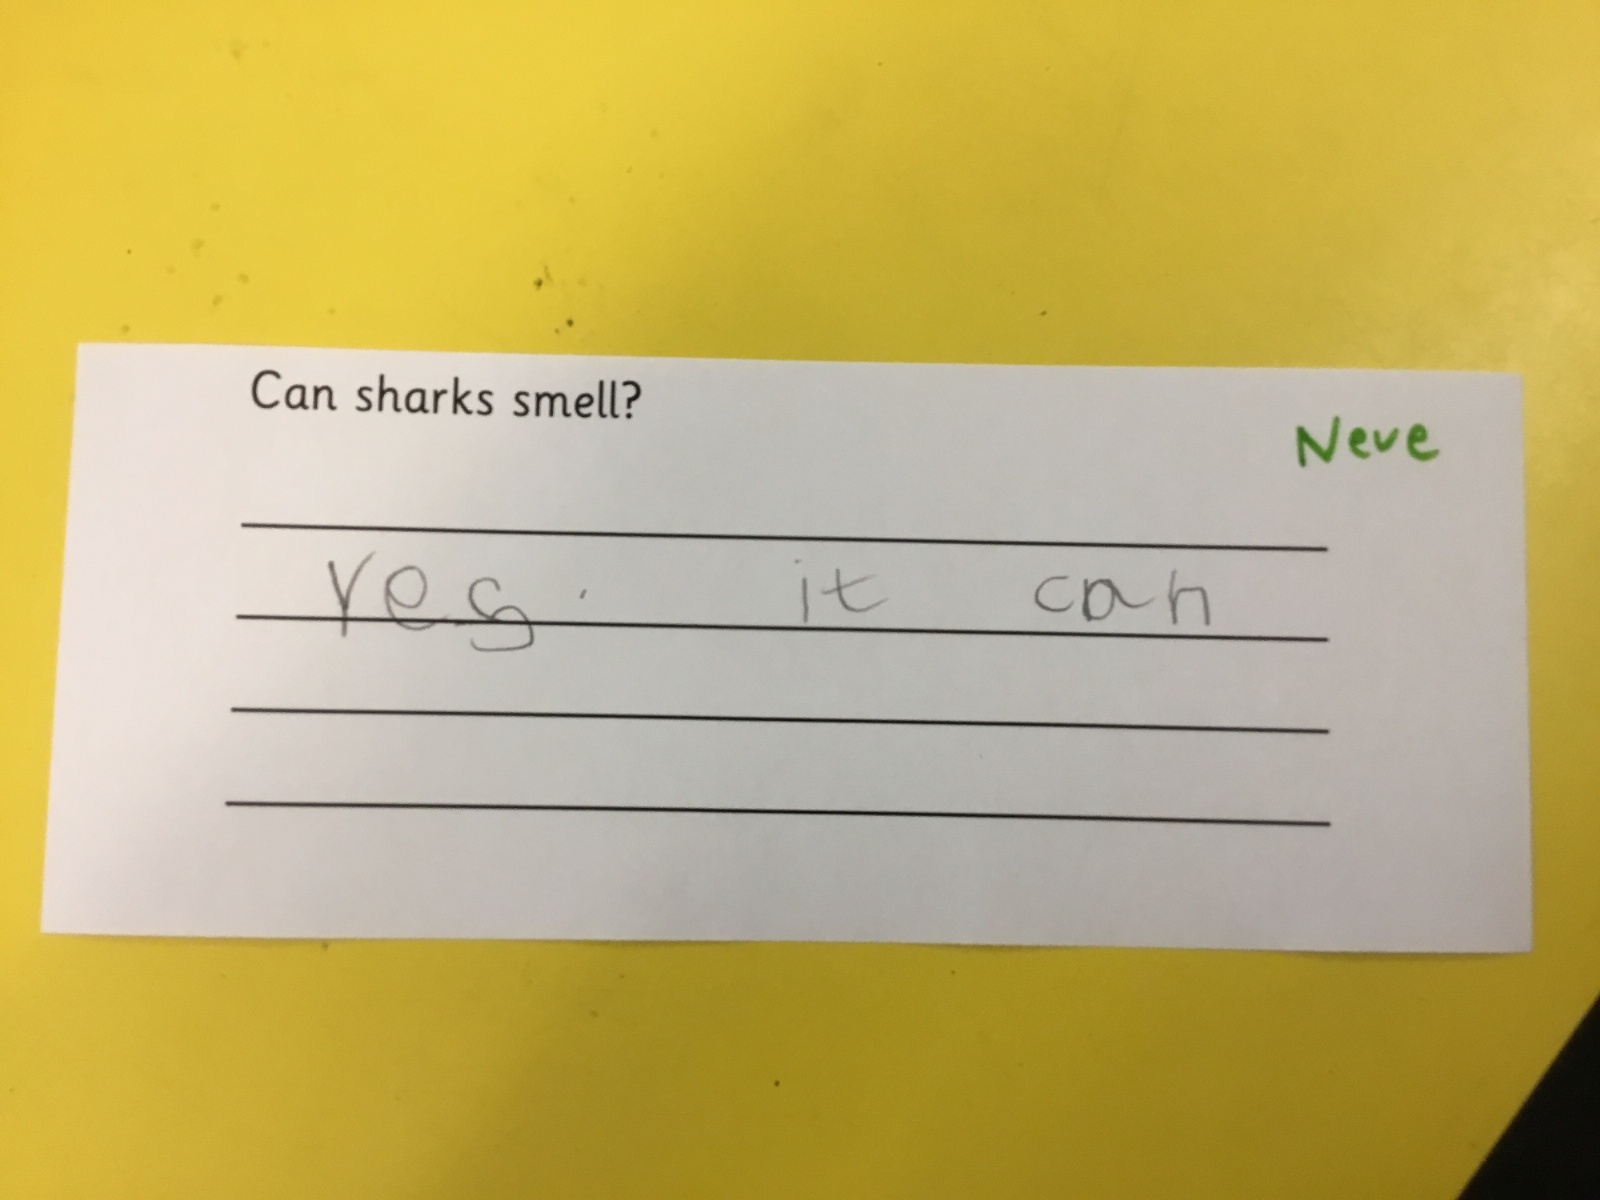 Can sharks smell?
Neve
Yes. it can